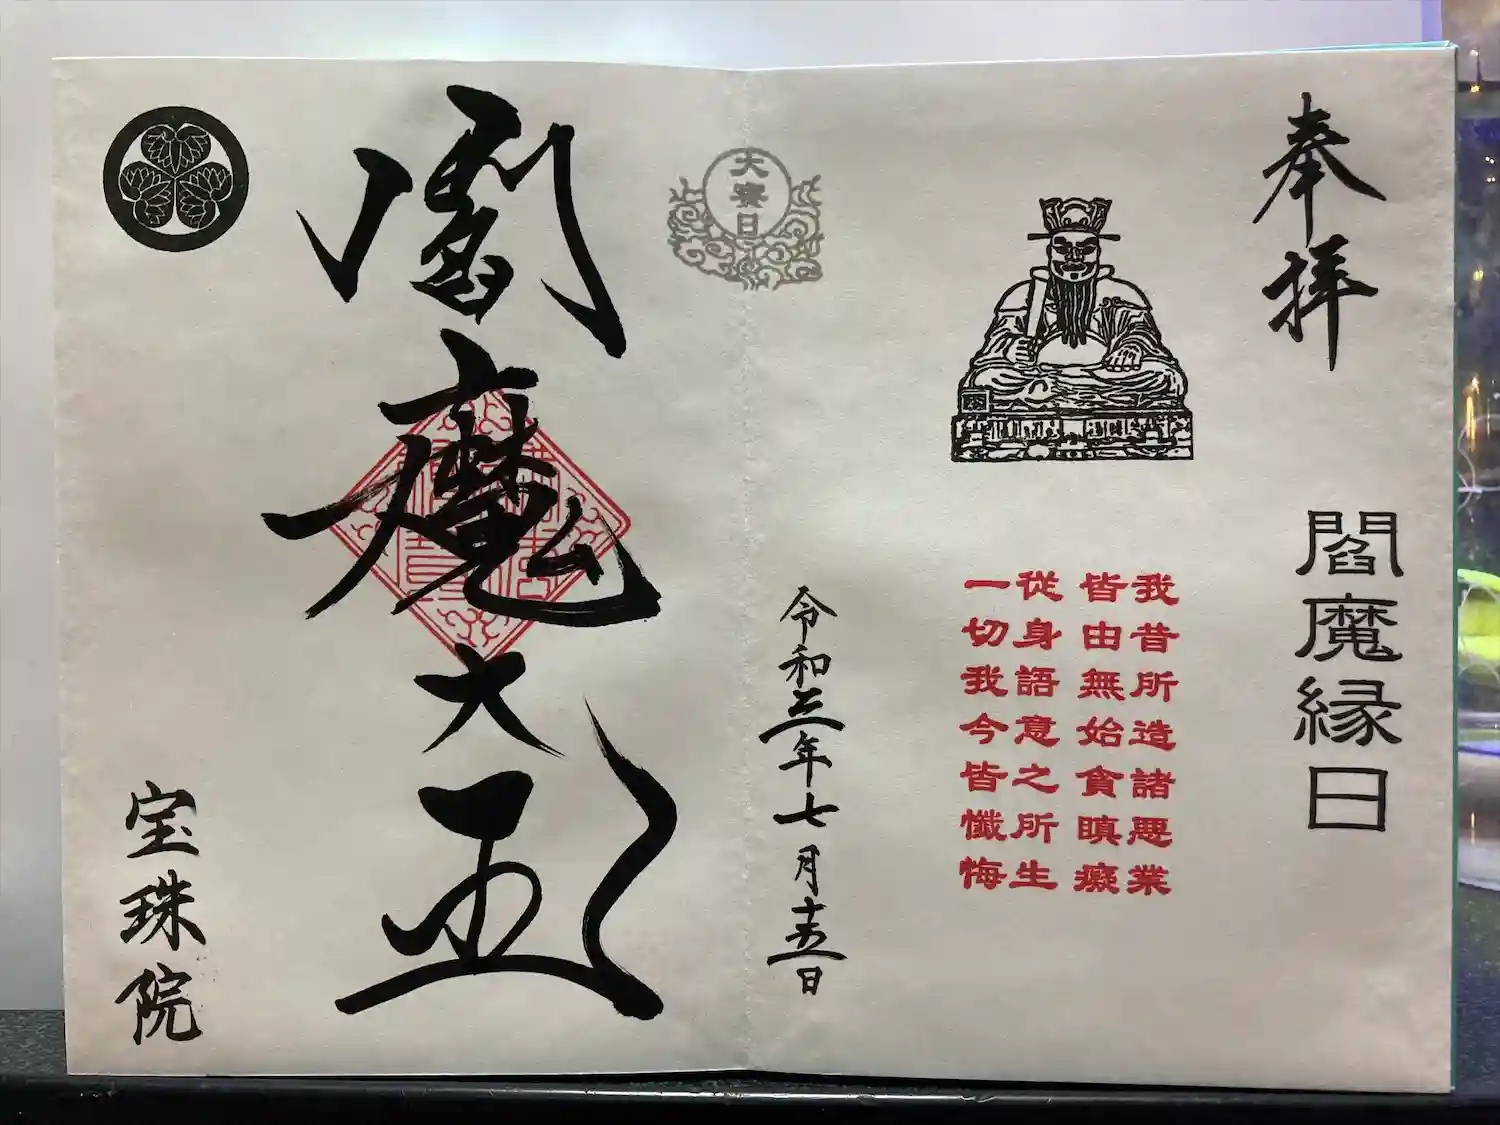 奉拝
閻魔縁日
我昔所造諸悪業
皆由無始貪瞋癡
從身語意之所生
一切我今皆懺悔
令和三年七月十五日
大賽日
閻魔大王
宝珠院